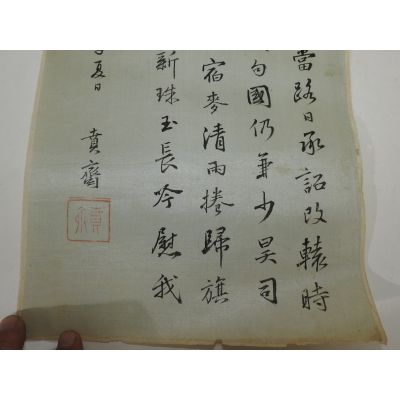 當路日承詔改轅時
句國仍兼少昊司
宿麥清雨捲歸旗
新珠玉長吟慰我
夏日
賁齋